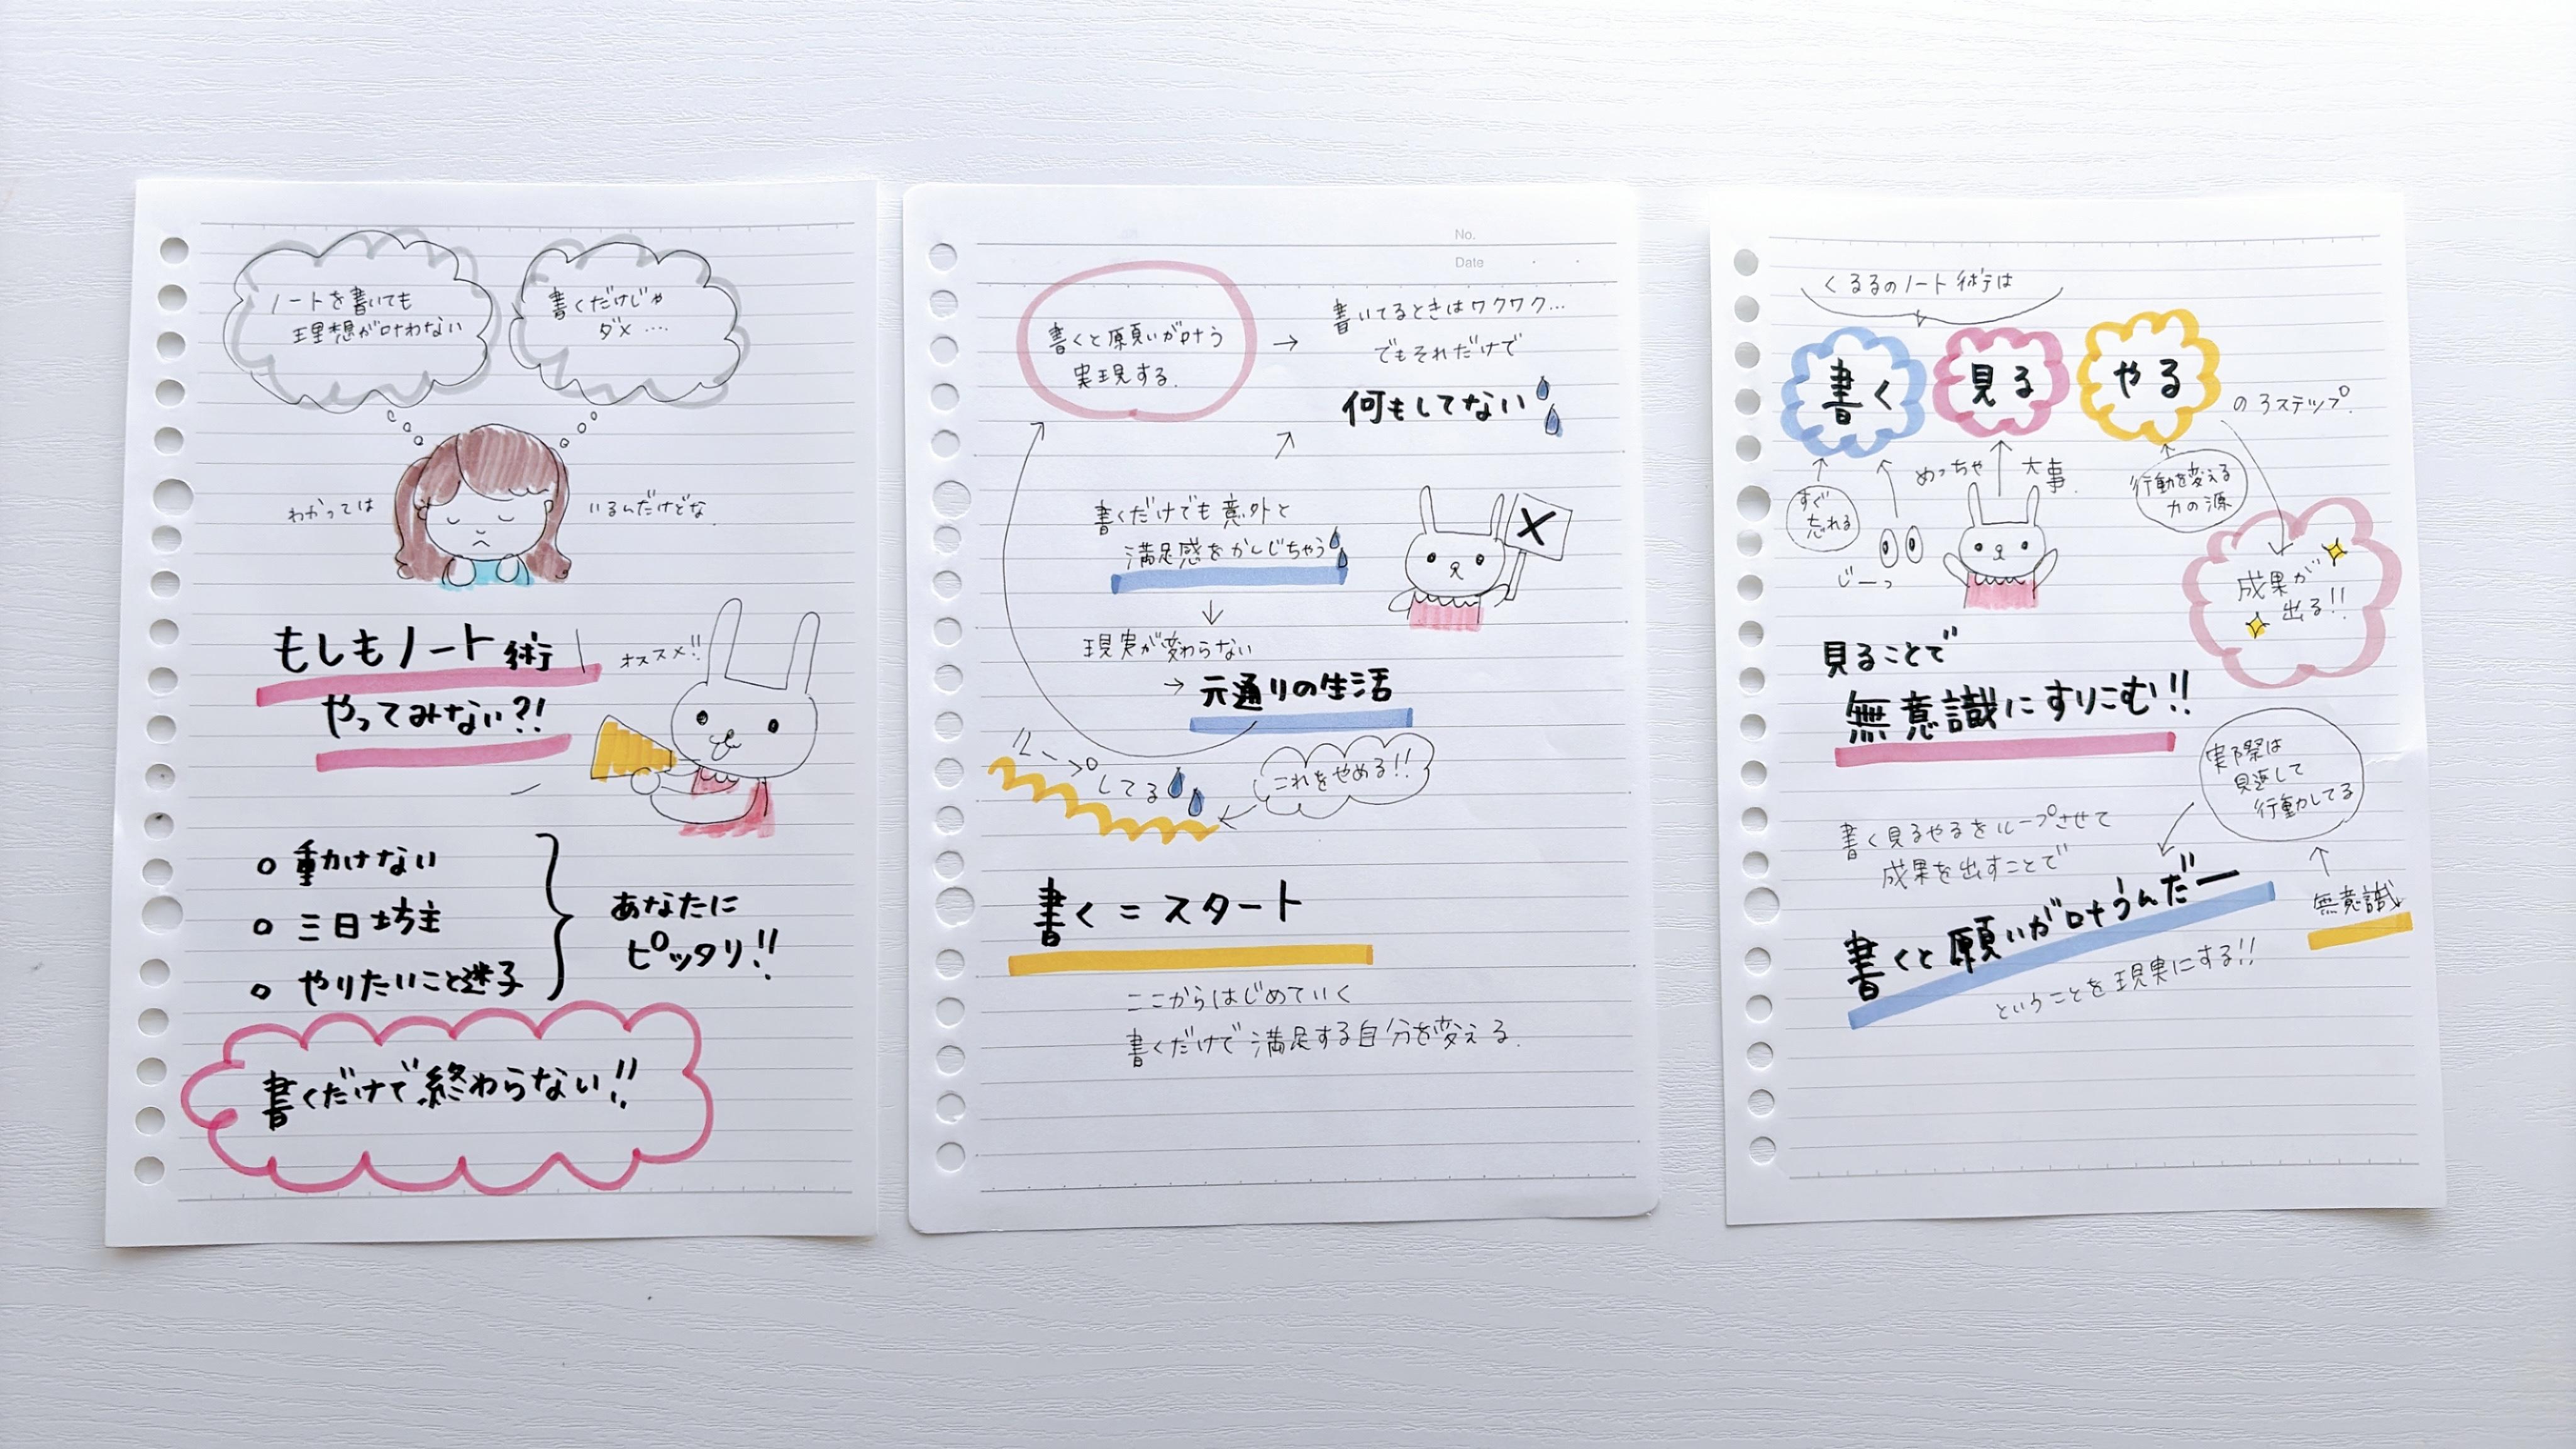 ノートを書いても
理想が叶わない
書くだけじゃ
ダメ....
わかっては
いるんだけどな
もしもノート術
オススメ!!
やってみない?!
○ 動けない
○ 三日坊主
○ やりたいこと迷子
あなたに
ピッタリ!!
書くだけで終わらない!!
No.
Date
書くと願いが叶う
実現する.
→ 書いてるときはワクワク...
でもそれだけで
何もしてない
書くだけでも意外と
満足感をかんじちゃう
↓
現実が変わらない
→ 元通りの生活
ループしてる
これをやめる!!
書く=スタート
ここからはじめていく
書くだけで満足する自分を変える.
くるるのノート術は
書く 見る やる
の3ステップ.
すぐ
忘れる
じーっ
めっちゃ 大事.
行動を変える
力の源
成果が
出る!!
見ることで
無意識にすりこむ!!
実際は
見返して
行動してる
無意識
書く見るやるをループさせて
成果を出すことで
書くと願いが叶うんだー
ということを現実にする!!